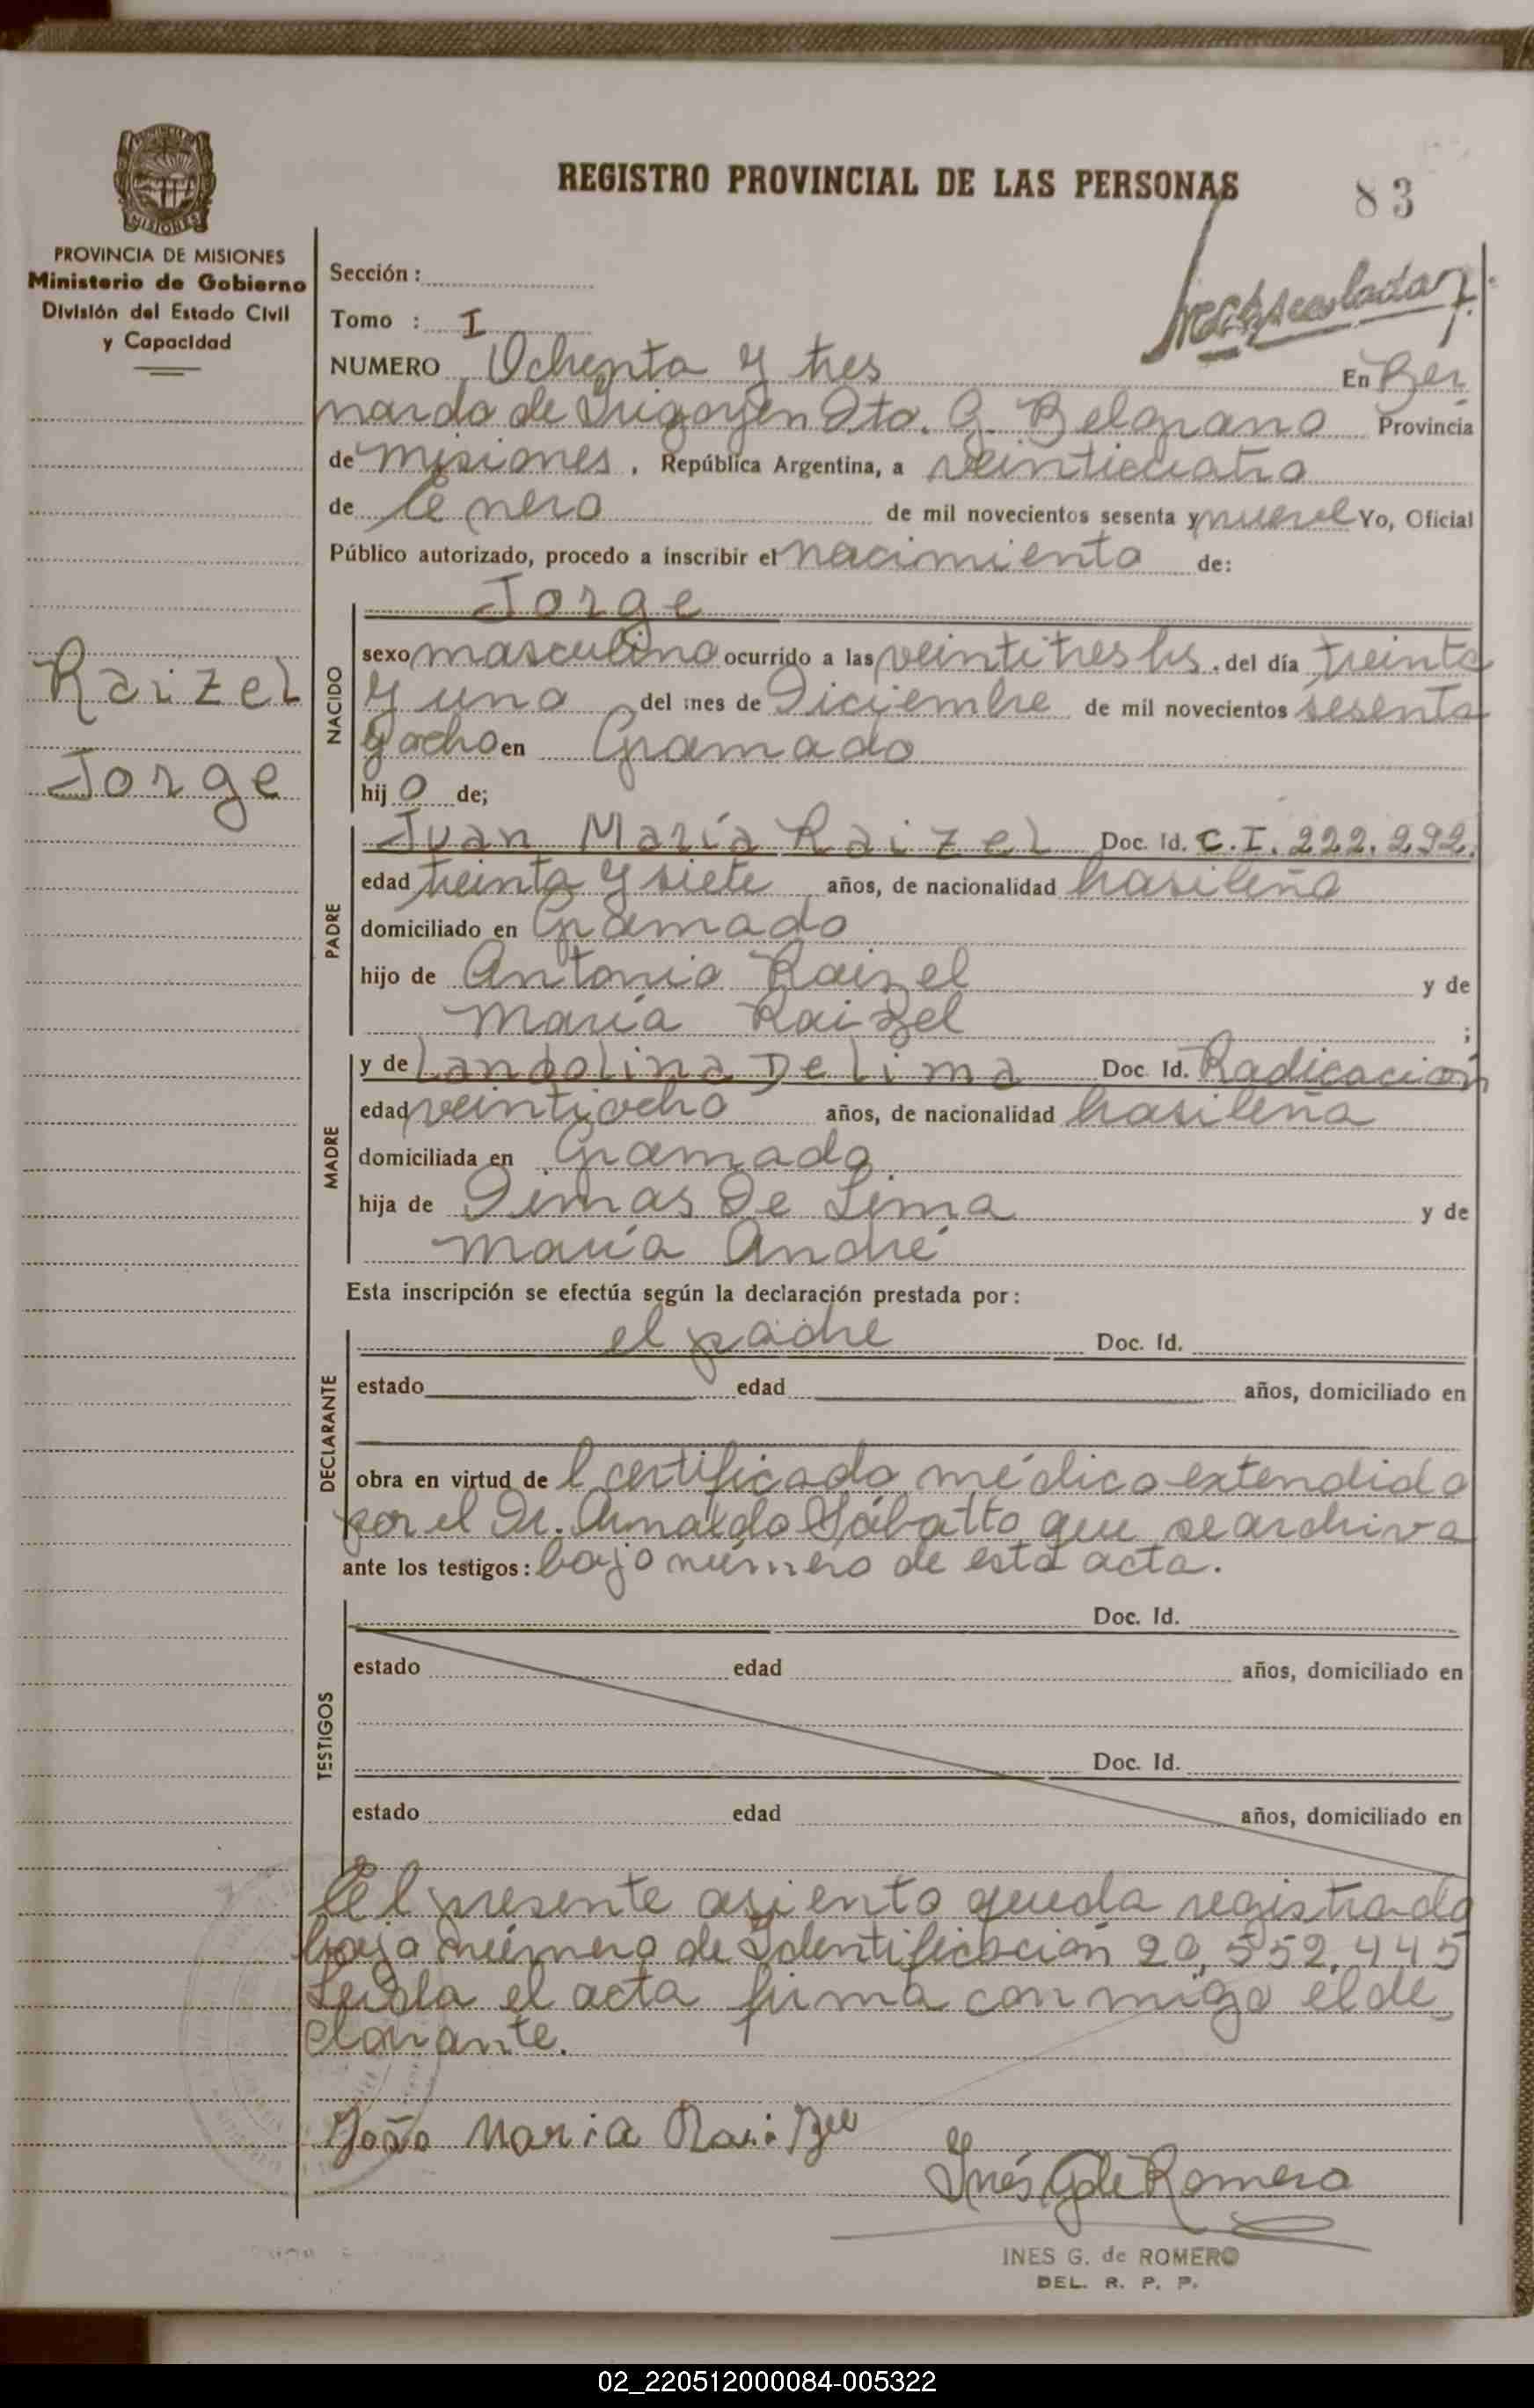 REGISTRO PROVINCIAL DE LAS PERSONAS
83
MISIONES
PROVINCIA DE MISIONES
Ministerio de Gobierno
División del Estado Civil
y Capacidad
Sección :
Tomo : I
NUMERO Ochenta y tres En Ber
nardo de Irigoyen Dto. G. Belgrano Provincia
de Misiones, República Argentina, a veinticuatro
de Enero de mil novecientos sesenta y nueve Yo, Oficial
Público autorizado, procedo a inscribir el nacimiento de:
Raizel
Jorge
NACIDO
Jorge
sexo masculino ocurrido a las veintitres hs. del día treinta
y uno del mes de Diciembre de mil novecientos sesenta
y ocho en Gramado
hijo de;
PADRE
Juan María Raizel Doc. Id. C.I. 222.292.
edad treinta y siete años, de nacionalidad brasileña
domiciliado en Gramado
hijo de Antonio Raizel y de
María Raizel ;
MADRE
y de Landolina De Lima Doc. Id. Radicación
edad veintiocho años, de nacionalidad brasileña
domiciliada en Gramado
hija de Dimas De Lima y de
María André
Esta inscripción se efectúa según la declaración prestada por:
DECLARANTE
el padre Doc. Id.
estado edad años, domiciliado en
obra en virtud de l certificado médico extendido
por el Dr. Arnaldo Sábatto que se archiva
ante los testigos: bajo número de esta acta.
TESTIGOS
Doc. Id.
estado edad años, domiciliado en
Doc. Id.
estado edad años, domiciliado en
El presente asiento queda registrado
bajo número de Identificación 20,552,445
Leída el acta firma conmigo el de
clarante.
João Maria Raizel
Inés G de Romero
INES G. de ROMERO
DEL. R. P. P.
02_220512000084-005322